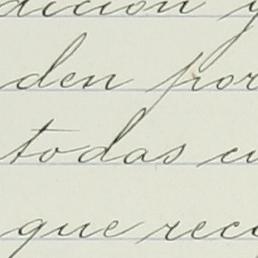 dición y
den por
todas cu
que recu